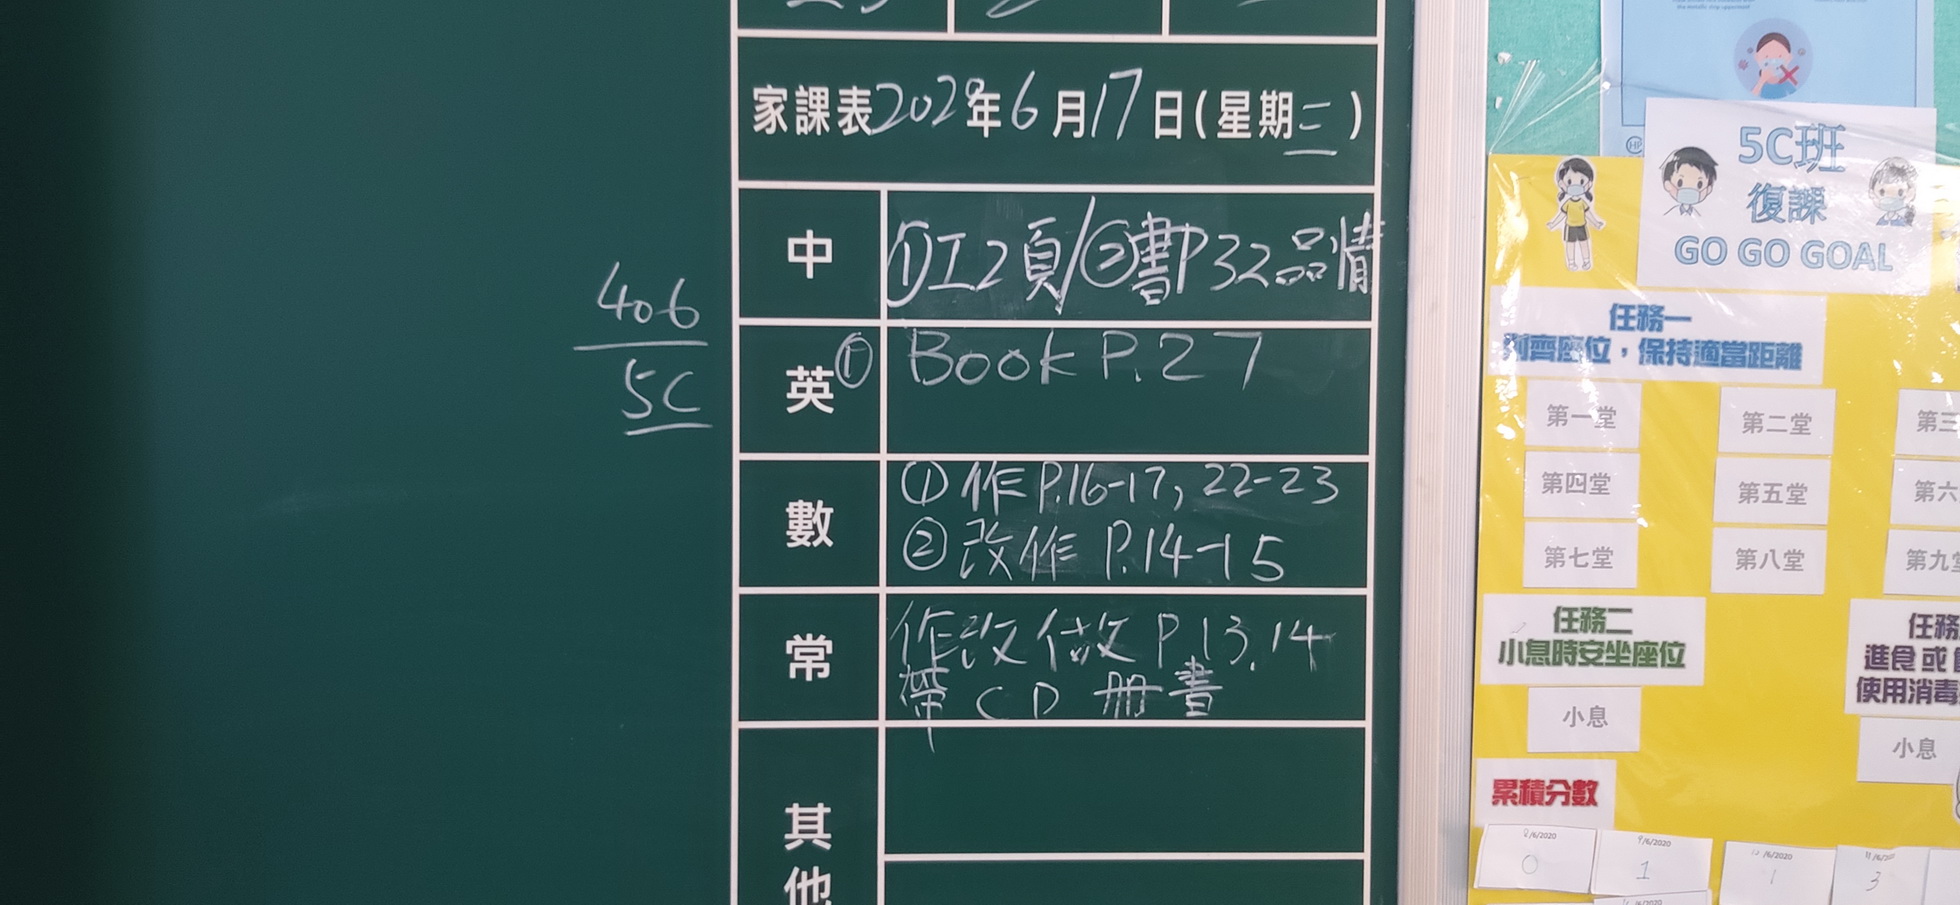 家課表2020年6月17日(星期三)
中
①工2頁/②書P32品情
英
① Book P.27
數
① 作P.16-17, 22-23
② 改作 P.14-15
常
作改做改P.13.14
帶CD 冊書
其他
406
5C
5C班
復課
GO GO GOAL
任務一
列齊座位，保持適當距離
第一堂
第二堂
第三
第四堂
第五堂
第六
第七堂
第八堂
第九堂
任務二
小息時安坐座位
小息
任務
進食或
使用消毒
小息
累積分數
8/6/2020
0
9/6/2020
1
1
3